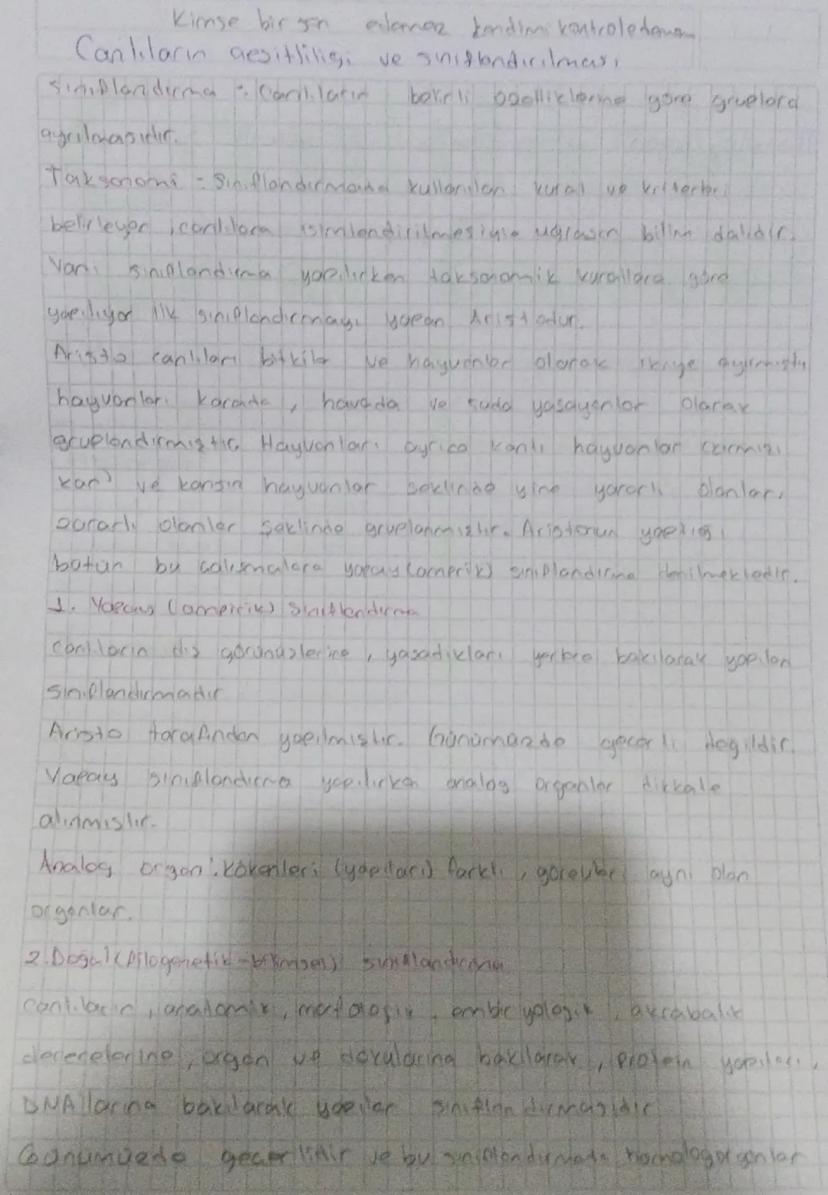 Kimse bir şen edemez kendimi kontrol edemem
Canlıların çeşitliliği ve sınıflandırılması
Sınıflandırma : Canlıların belirli özelliklerine göre gruplara
ayrılmasıdır.
Taksonomi = Sınıflandırmada kullanılan kural ve kriterleri
belirleyen, canlıların isimlendirilmesiyle uğraşan bilim dalıdır.
Yani sınıflandırma yapılırken taksonomik kurallara göre
yapılıyor ilk sınıflandırmayı yapan Aristodur.
Aristo canlıları bitkiler ve hayvanlar olarak ikiye ayırmıştır
hayvanları karada, havada ve suda yaşayanlar olarak
gruplandırmıştır. Hayvanları ayrıca kanlı hayvanlar (kırmızı
kan) ve kansız hayvanlar şeklinde yine yararlı olanlar,
zararlı olanlar şeklinde gruplanmıştır. Aristonun yaptığı
bütün bu çalışmalara yapay (amprik) sınıflandırma denilmektedir.
1. Yapay (ampirik) sınıflandırma
Canlıların dış görünüşlerine, yaşadıkları yerlere bakılarak yapılan
sınıflandırmadır
Aristo tarafından yapılmıştır. Günümüzde geçerli değildir.
Yapay sınıflandırma yapılırken analog organlar dikkate
alınmıştır.
Analog organ: kökenleri (yapıları) farklı, görevleri aynı olan
organlar.
2. Doğal (filogenetik - bilimsel) sınıflandırma
Canlıların, anatomik, morfolojik, embriyolojik, akrabalık
derecelerine, organ ve dokularına bakılarak, protein yapıları,
DNA'larına bakılarak yapılan sınıflandırmasıdır
Günümüzde geçerlidir ve bu sınıflandırmada homolog organlar